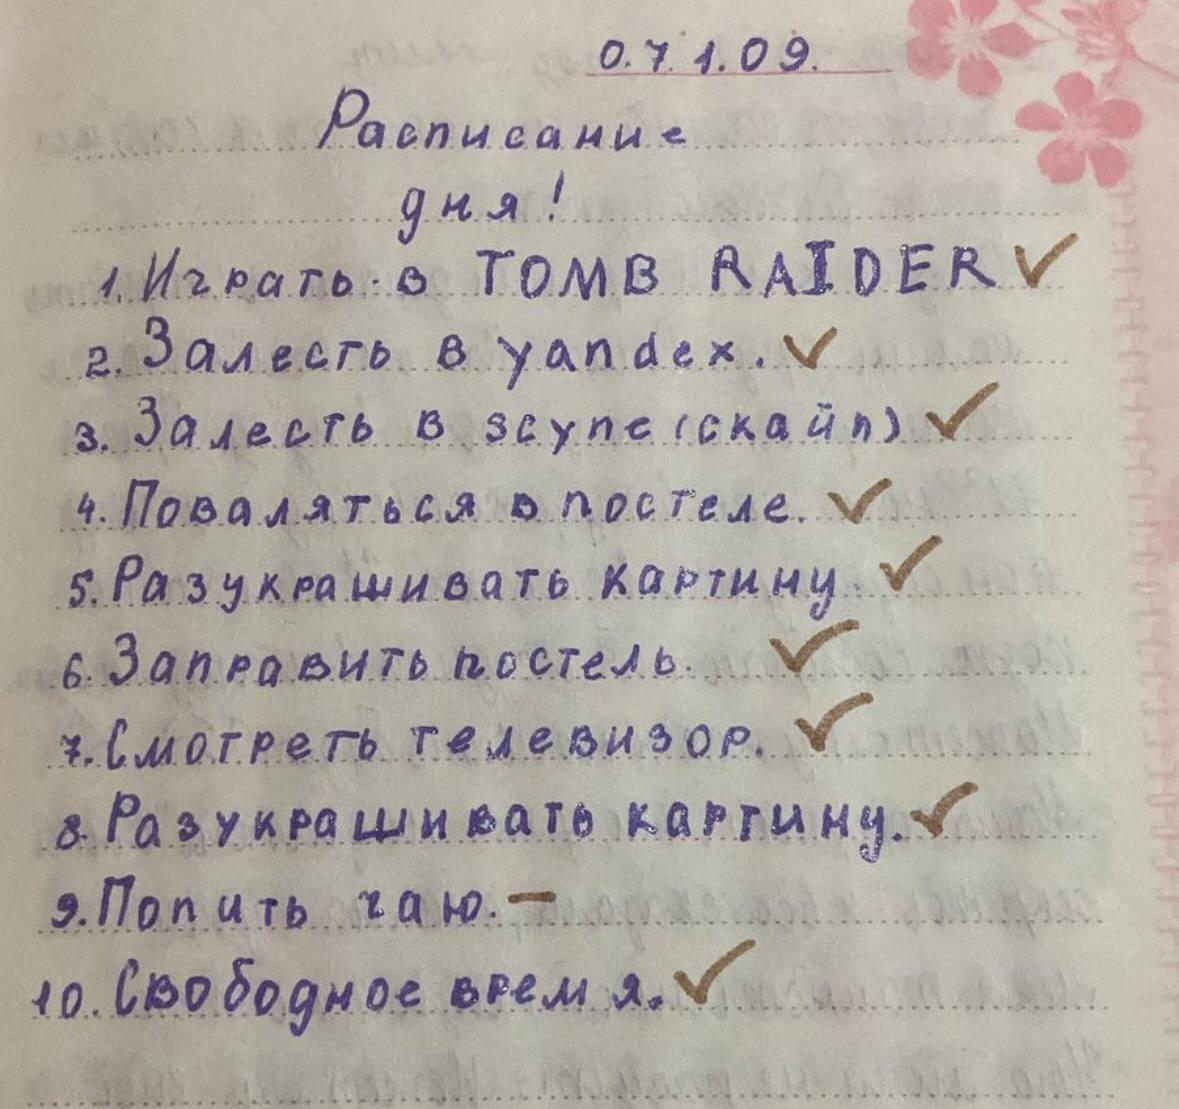 0.7.1.09.
Расписание
дня!
1. Играть в TOMB RAIDER ✓
2. Залесть в yandex. ✓
3. Залесть в зсупе (скайп) ✓
4. Поваляться в постеле. ✓
5. Разукрашивать картину. ✓
6. Заправить постель. ✓
7. Смотреть телевизор. ✓
8. Разукрашивать картину. ✓
9. Попить чаю. –
10. Свободное время. ✓